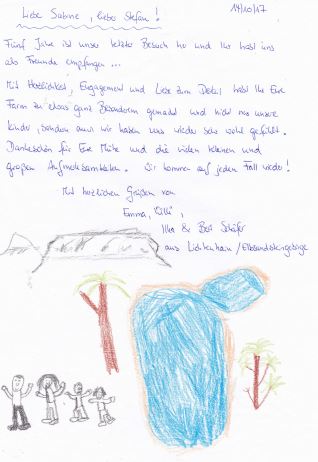 14/10/17
Liebe Sabine, lieber Stefan!
Fünf Jahre ist unser letzter Besuch her und Ihr habt uns
als Freunde empfangen ...
Mit Herzlichkeit, Engagement und Liebe zum Detail habt Ihr Eure
Farm zu etwas ganz Besonderem gemacht und nicht nur unsere
Kinder, sondern auch wir haben uns wieder sehr wohl gefühlt.
Dankeschön für Eure Mühe und die vielen kleinen und
großen Aufmerksamkeiten. Wir kommen auf jeden Fall wieder!
Mit herzlichen Grüßen von
Emma, Willi,
Ilka & Schäfer
aus Lichtenhain/Elbsandsteingebirge